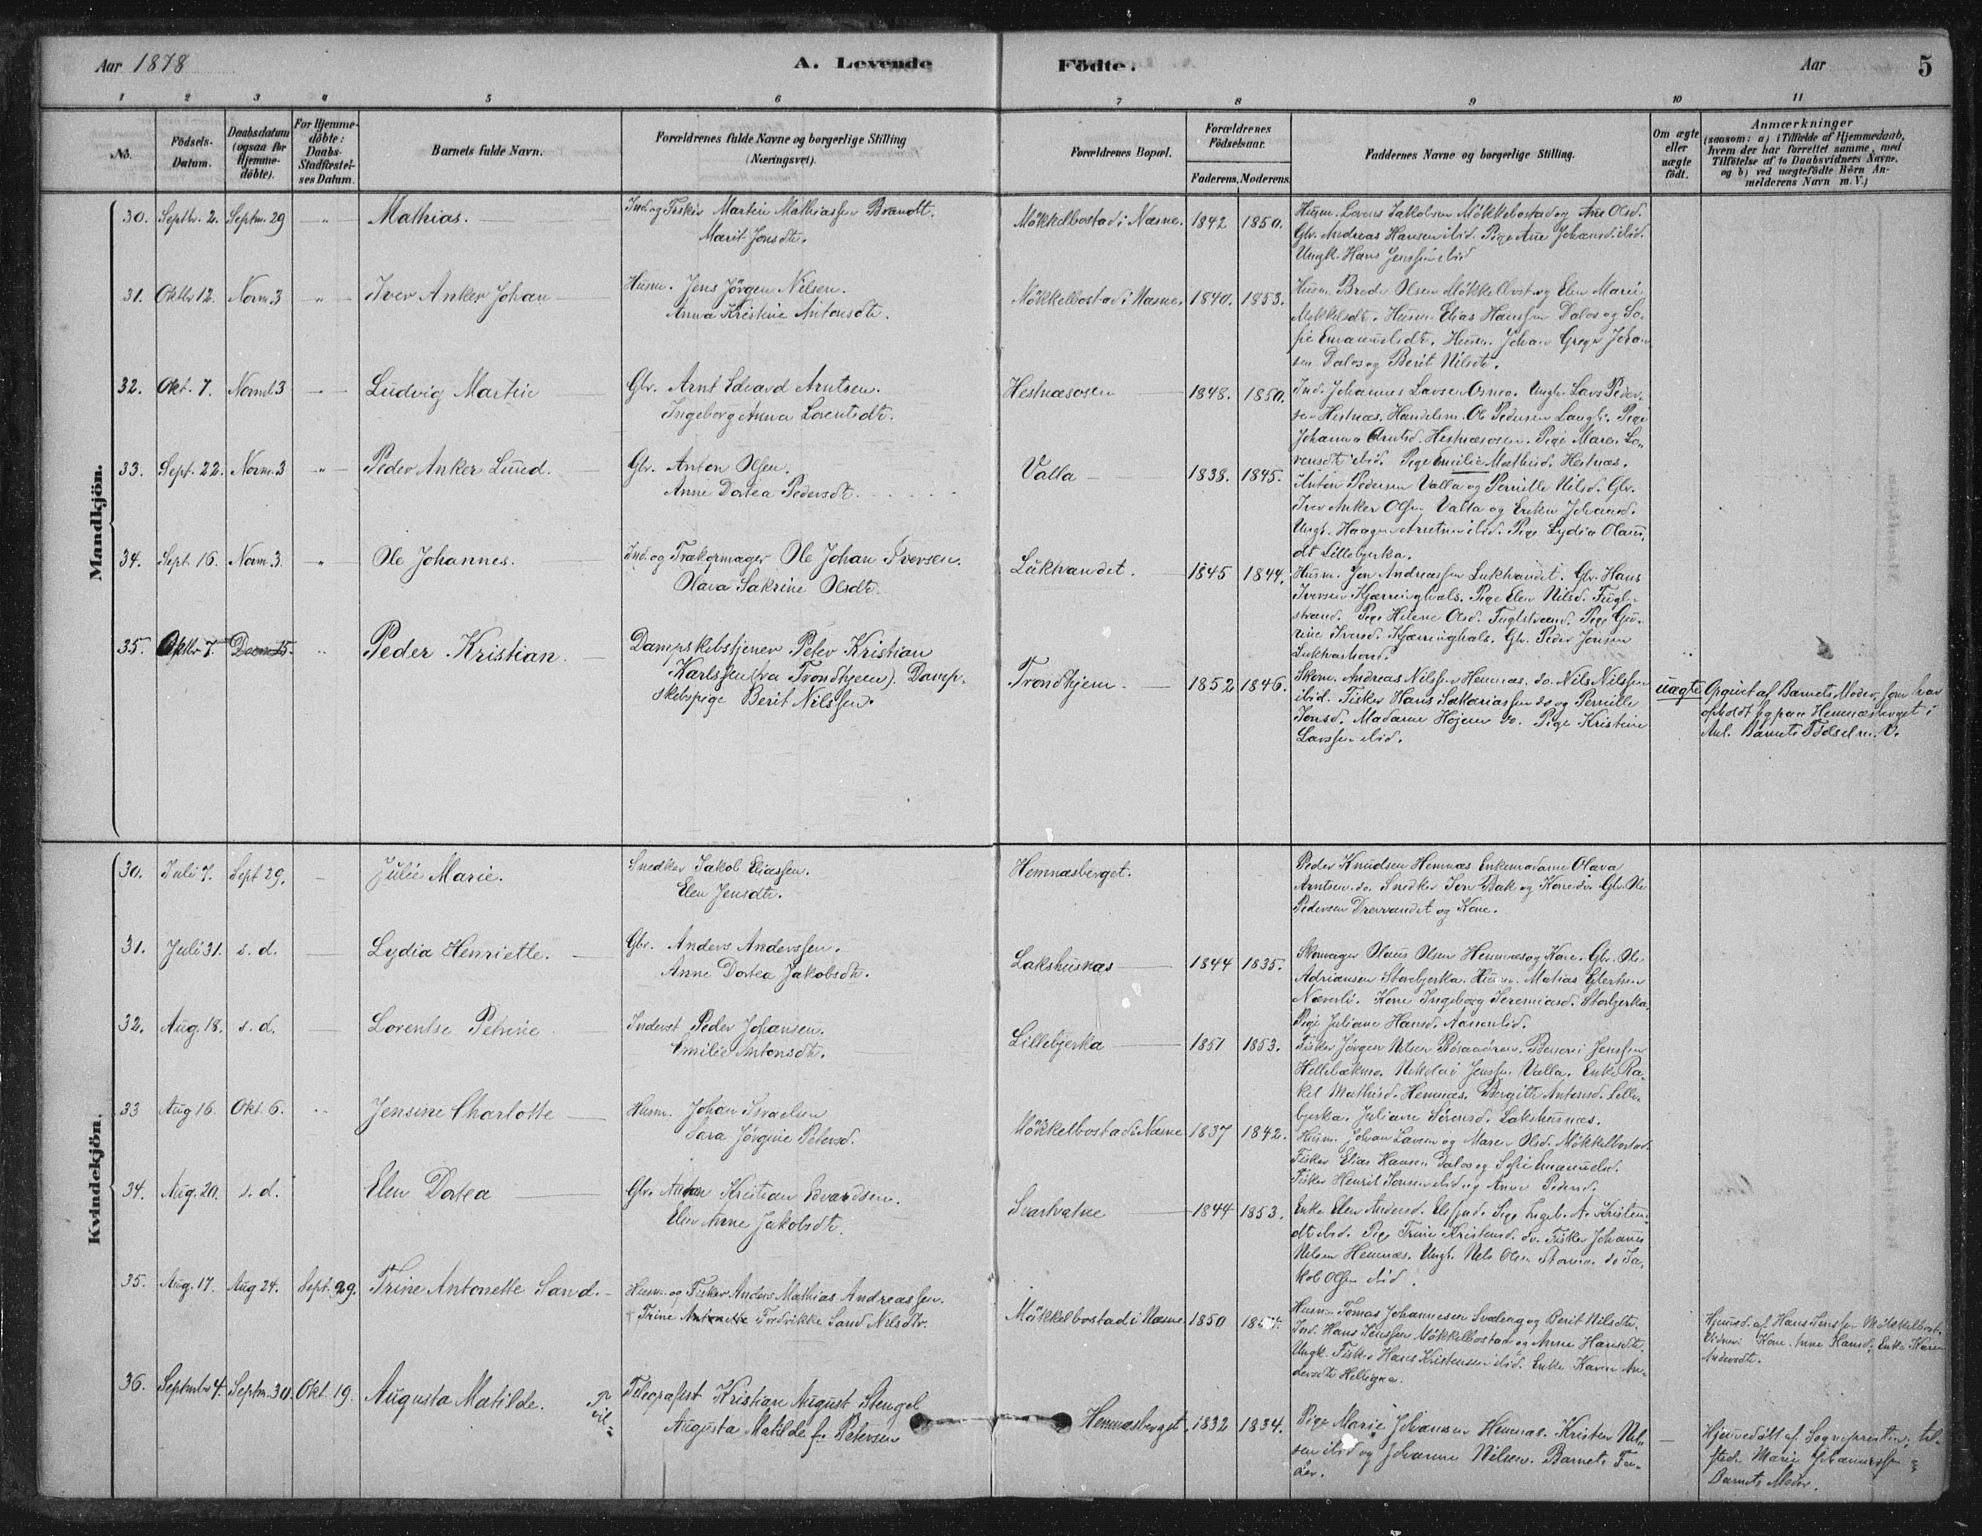 Aar 1878
A. Levende
Födte.
Aar
5
1 2 3 4 5 6 7 8 9 10 11
No.
Födsels-
Datum.
Daabsdatum
(ogsaa for
Hjemme-
döbte).
For Hjemme-
döbte:
Daabs-
Stadfæstel-
ses Datum.
Barnets fulde Navn.
Forældrenes fulde Navne og borgerlige Stilling
(Næringsvei).
Forældrenes Bopæl.
Forældrenes
Födselsaar.
Faderens. Moderens.
Faddernes Navne og borgerlige Stilling.
Om ægte
eller
uægte
født.
Anmærkninger
(saasom: a) i Tilfælde af Hjemmedaab,
hvem der har forrettet samme, med
Tilføielse af to Daabsvidners Navne,
og b) ved uægtefödte Börn An-
melderens Navn m. V.)
Mandkjön.
30. Septbr. 2. Septm. 29 Mathias.
Ind. og Fisker Martin Mathiassen Brandt.
Marit Jonsdtr.
Møkkelbostad i Næsne. 1842 1850.
Husm. Lorens Jakobsen Møkkelbostad og Ane Olsd.
Gbr. Andreas Hansen ibid. Pige Ane Johansd. ibid.
Ungk. Hans Jenssen ibid
31. Oktbr 12. Novm. 3 Iver Anker Johan
Husm. Jens Jörgen Nilsen.
Anna Kristine Antonsdtr.
Møkkelbostad i Næsne. 1840. 1853.
Husm. Brede Olsen Møkkelbost. og Elen Marie
Mikkelsdt. Husm. Elias Hanssen Dalos og So-
fie Emanuelsdt. Husm. Johan Greger Johan
sen Dalos og Berit Nilsdt.
32. Okt. 7. Novmb. 3 Ludvig Martin
Gbr. Arnt Edvard Arntsen.
Ingeborg Anna Lorentsdtr.
Hestnæsosen 1848. 1850.
Ind. Johannes Larsen Ungk. Lars Peder-
sen Hestnæs. Handelsm. Ole Pedersen Pige
Johanna Arntsd. Hestnæsosen. Pige Maren Lo-
rensdt ibid. Pige Emilie Mathisd. Hestnæs.
33. Sept. 22. Novm. 3 Peder Anker Lund.
Gbr. Anton Olsen.
Anne Dortea Pedersdt.
Valla 1838. 1845.
Anton Pedersen Valla og Pernille Nilsd. Gbr.
Iver Anker Olsen Valla og Johansd.
Ungk. Haagen ibid. Pige Lydia
Lillebjerka.
34. Sept. 16. Novm. 3. Ole Johannes.
Ind. og Trækermager Ole Johan Iversen.
Olava Sakrine Olsdt.
Luktvandet. 1845 1844.
Husm. Jon Andreassen Luktvandet. Gbr. Hans
Iversen Kjærringhals. Pige Elen Nilsd. Fugl-
strand. Pige Helene Olsd. Fuglstrand. Pige Gu-
rine Iversd. Kjærringhals. Gbr. Peder Jensen
35. Oktbr 7. Decm. 15. Peder Kristian.
Dampskibstjener Peter Kristian
Karlssen (fra Trondhjem). Damp-
skibspige Berit Nilssen.
Trondhjem. 1852 1846.
Skom. Andreas Nilssen Hemnæs. do. Nils Nilssen
ibid. Fisker Hans Sakariassen do og Pernille
Jonsd. Madame Højem do. Pige Kristine
Larssen ibid.
uægte
Opgivet af Barnets Moder, som har
opholdt sig paa Hemnæsberget i
Anl. Barnets Födsel m. V.
Kvindekjön.
30. Juli 7. Sept 29. Julie Marie.
Snedker Jakob Eliassen.
Elen Jensdtr.
Hemnæsberget.
Peder Knudsen Hemnæs. Enkemadame Olava
Arntsen do. Snedker Jon Bak og Kone do. Gbr. Ole
Pedersen Drevvandet og Kone.
31. Juli 31. s. d. Lydia Henriette.
Gbr. Anders Anderssen.
Anne Dortea Jakobsdt.
Lakshusnæs 1844 1835.
Skomager Olaus Olsen Hemnæs og Kone. Gbr. Ole
Adriansen Storbjerka. Husm. Matias Eilertsen
Næverli. Kone Ingeborg Jeremiasd. Storbjerka.
Pige Juliane Hansd. Aasenlid.
32. Aug. 18. s. d. Lorentse Petrine
Inderst Peder Johansen.
Emilie Antonsdt.
Lillebjerka 1851 1853.
Fisker Jörgen Nilsen Røsaaören. Jenssen
Hellebækmo. Nikolai Jenssen Valla. Enke Ra-
kel Mathisd. Hemnæs. Bergitte Antonsd. Lille-
bjerka. Juliane Sörensd. Lakshusnæs.
33 Aug 16. Okt. 6. Jensine Charlotte
Husm. Johan Israelsen
Sara Jörgine Petersd.
Møkkelbostad i Næsne 1837 1842.
Husm. Johan Larsen og Maren Olsd. Møkkelbostad.
Fisker Elias Hansen Dalos og Sofie Emanuelsd.
Fisker Henrik Jonsen ibid og Anne Pedersd.
34. Aug. 20. s. d. Elen Dortea
Gbr. Anton Kristian Edvardsen.
Elen Anne Jakobsdt.
Svartvatne 1844 1853.
Enke Elen Andersd. Pige Ingeb. A. Kristen-
dt ibid. Pige Trine Kristensd. do. Fisker Johannes
Nilsen Hemnæs. Ungk. Nils Olsen do Ja-
kob Olsen ibid.
35. Aug. 17. Aug 24. Sept. 29. Trine Antonette Sand.
Husm. og Fisker Anders Mathias Andreassen.
Trine Antonette Fredrikke Sand Nilsdtr.
Møkkelbostad i Næsne 1850
Husm. Tomas Johannesen Svaleng og Berit Nilsdt.
Ind. Hans Jenssen Møkkelbostad og Anne Hansdt.
Ungk. Fisker Hans Kristenssen ibid. Enke Karen An-
dersdt Helligaa.
Hjemmed. af Hans Jenssen Møkkelbost.
Vidner: Kone Anne Hansd, Enke Karen
Andersdt.
36. Septmbr 4. Septm. 30. Okt. 19. Augusta Matilde. Tvil-
Telegrafist Kristian August Stengel
Augusta Matilde f. Petersen
Hemnæsberget. 1832 1834.
Pige Marie Johansen Hemnæs. Kristen Nil-
sen ibid og Johanne Nilsen. Barnets Fa-
der.
Hjemmedöbt af Sognepresten, til-
stede Marie Johannessen
Barnets Moder.